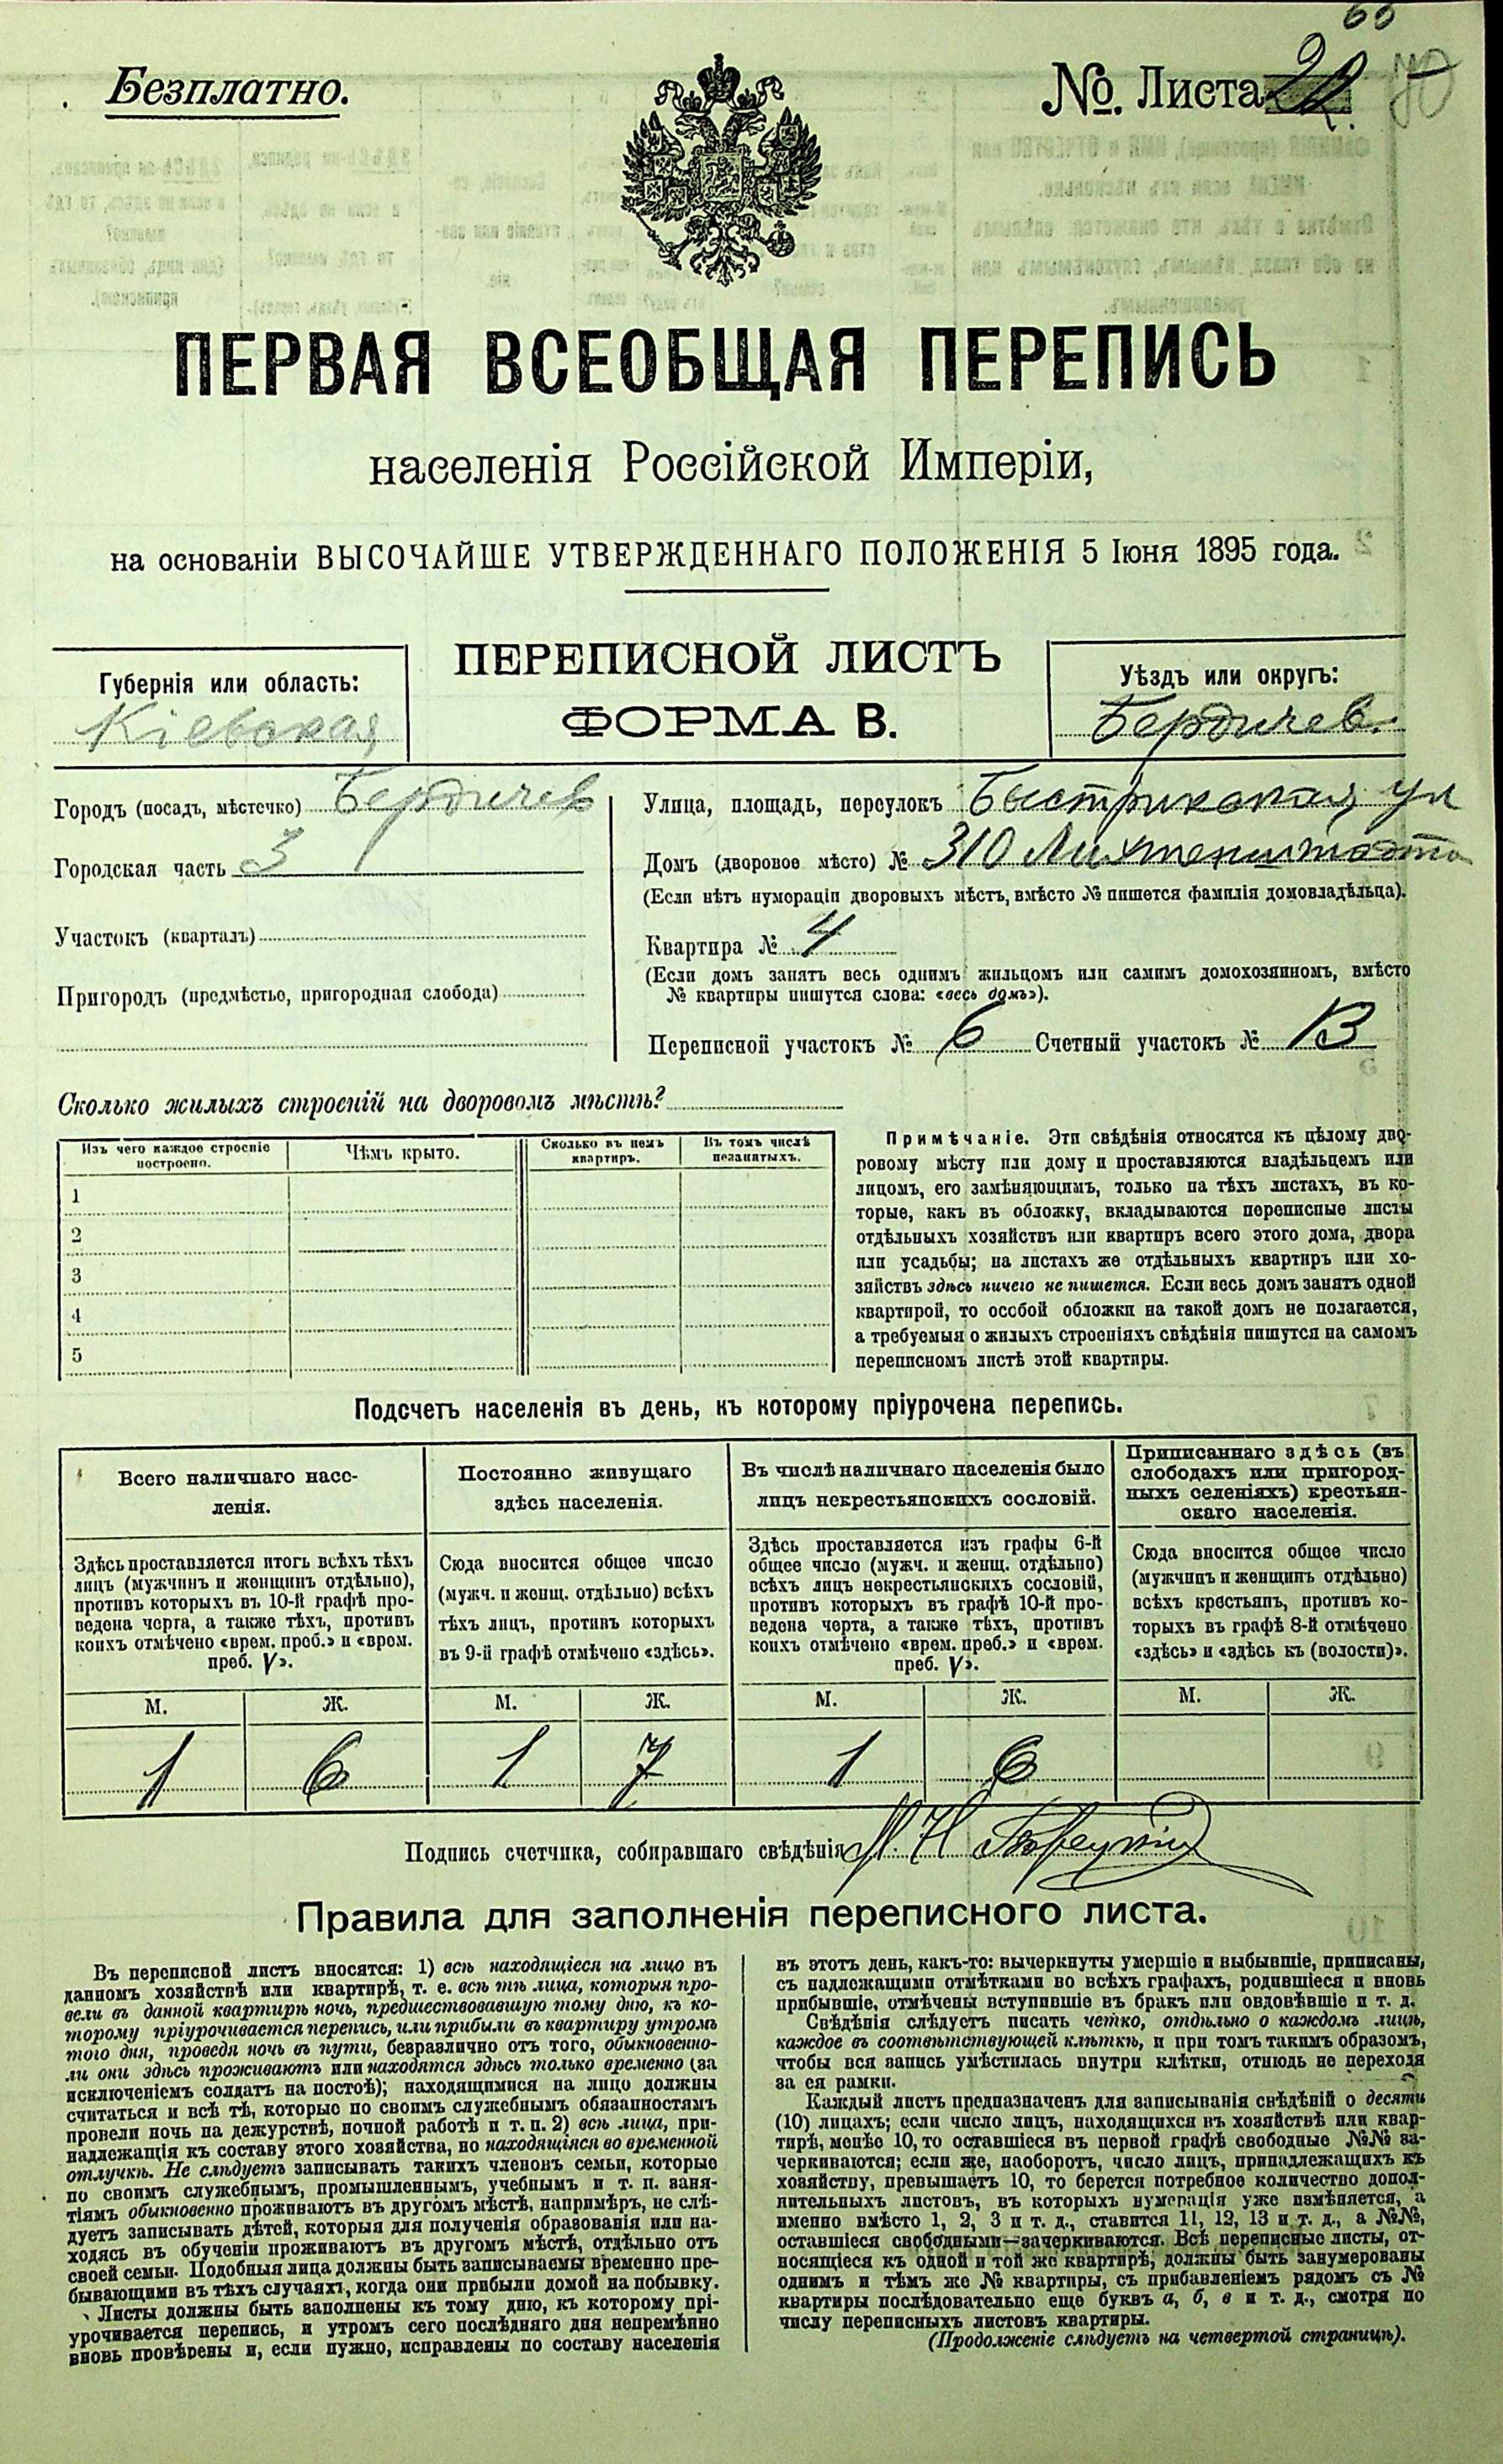 Безплатно.
№. Листа
ПЕРВАЯ ВСЕОБЩАЯ ПЕРЕПИСЬ
населенія Россійской Имперіи,
на основаніи ВЫСОЧАЙШЕ УТВЕРЖДЕННАГО ПОЛОЖЕНІЯ 5 Іюня 1895 года.
ПЕРЕПИСНОЙ ЛИСТЪ
ФОРМА В.
Губернія или область:
Кіевская
Уѣздъ или округъ:
Бердичев.
Городъ (посадъ, мѣстечко) Бердичев
Городская часть 3
Участокъ (кварталъ)
Пригородъ (предмѣстье, пригородная слобода)
Улица, площадь, переулокъ Быстрикская ул
Домъ (дворовое мѣсто) № 310 Лихтенштейна
(Если нѣтъ нумераціи дворовыхъ мѣстъ, вмѣсто № пишется фамилія домовладѣльца).
Квартира № 4
(Если домъ занятъ весь однимъ жильцомъ или самимъ домохозяиномъ, вмѣсто
№ квартиры пишутся слова: «весь домъ»).
Переписной участокъ № 6 Счетный участокъ № 13
Сколько жилыхъ строеній на дворовомъ мѣстѣ?
Изъ чего каждое строеніе построено.
Чѣмъ крыто.
Сколько въ немъ квартиръ.
Въ томъ числѣ незанятыхъ.
1
2
3
4
5
Примѣчаніе. Эти свѣдѣнія относятся къ цѣлому дво-
ровому мѣсту или дому и проставляются владѣльцемъ или
лицомъ, его замѣняющимъ, только на тѣхъ листахъ, въ ко-
торые, какъ въ обложку, вкладываются переписные листы
отдѣльныхъ хозяйствъ или квартиръ всего этого дома, двора
или усадьбы; на листахъ же отдѣльныхъ квартиръ или хо-
зяйствъ здѣсь ничего не пишется. Если весь домъ занятъ одной
квартирой, то особой обложки на такой домъ не полагается,
а требуемыя о жилыхъ строеніяхъ свѣдѣнія пишутся на самомъ
переписномъ листѣ этой квартиры.
Подсчетъ населенія въ день, къ которому пріурочена перепись.
Всего наличнаго насе-
ленія.
Здѣсь проставляется итогъ всѣхъ тѣхъ
лицъ (мужчинъ и женщинъ отдѣльно),
противъ которыхъ въ 10-й графѣ про-
ведена черта, а также тѣхъ, противъ
коихъ отмѣчено «врем. преб.» и «врем.
преб. V».
М. Ж.
1 6
Постоянно живущаго
здѣсь населенія.
Сюда вносится общее число
(мужч. и женщ. отдѣльно) всѣхъ
тѣхъ лицъ, противъ которыхъ
въ 9-й графѣ отмѣчено «здѣсь».
М. Ж.
1 7
Въ числѣ наличнаго населенія было
лицъ некрестьянскихъ сословій.
Здѣсь проставляется изъ графы 6-й
общее число (мужч. и женщ. отдѣльно)
всѣхъ лицъ некрестьянскихъ сословій,
противъ которыхъ въ графѣ 10-й про-
ведена черта, а также тѣхъ, противъ
коихъ отмѣчено «врем. преб.» и «врем.
преб. V».
М. Ж.
1 6
Приписаннаго здѣсь (въ
слободахъ или пригород-
ныхъ селеніяхъ) крестьян-
скаго населенія.
Сюда вносится общее число
(мужчинъ и женщинъ отдѣльно)
всѣхъ крестьянъ, противъ ко-
торыхъ въ графѣ 8-й отмѣчено
«здѣсь» и «здѣсь къ (волости)».
М. Ж.
Подпись счетчика, собиравшаго свѣдѣнія
Правила для заполненія переписного листа.
Въ переписной листъ вносятся: 1) всѣ находящіеся на лицо въ
данномъ хозяйствѣ или квартирѣ, т. е. всѣ тѣ лица, которыя про-
вели въ данной квартирѣ ночь, предшествовавшую тому дню, къ ко-
торому пріурочивается перепись, или прибыли въ квартиру утромъ
того дня, проведя ночь въ пути, безразлично отъ того, обыкновенно-
ли они здѣсь проживаютъ или находятся здѣсь только временно (за
исключеніемъ солдатъ на постоѣ); находящимися на лицо должны
считаться и всѣ тѣ, которые по своимъ служебнымъ обязанностямъ
провели ночь на дежурствѣ, ночной работѣ и т. п. 2) всѣ лица, при-
надлежащія къ составу этого хозяйства, но находящіяся во временной
отлучкѣ. Не слѣдуетъ записывать такихъ членовъ семьи, которые
по своимъ служебнымъ, промышленнымъ, учебнымъ и т. п. заня-
тіямъ обыкновенно проживаютъ въ другомъ мѣстѣ, напримѣръ, не слѣ-
дуетъ записывать дѣтей, которыя для полученія образованія или на-
ходясь въ обученіи проживаютъ въ другомъ мѣстѣ, отдѣльно отъ
своей семьи. Подобныя лица должны быть записываемы временно пре-
бывающими въ тѣхъ случаяхъ, когда они прибыли домой на побывку.
Листы должны быть заполнены къ тому дню, къ которому прі-
урочивается перепись, и утромъ сего послѣдняго дня непремѣнно
вновь провѣрены и, если нужно, исправлены по составу населенія
въ этотъ день, какъ-то: вычеркнуты умершіе и выбывшіе, приписаны,
съ надлежащими отмѣтками во всѣхъ графахъ, родившіеся и вновь
прибывшіе, отмѣчены вступившіе въ бракъ или овдовѣвшіе и т. д.
Свѣдѣнія слѣдуетъ писать четко, отдѣльно о каждомъ лицѣ,
каждое въ соотвѣтствующей клѣткѣ, и при томъ такимъ образомъ,
чтобы вся запись умѣстилась внутри клѣтки, отнюдь не переходя
за ея рамки.
Каждый листъ предназначенъ для записыванія свѣдѣній о десяти
(10) лицахъ; если число лицъ, находящихся въ хозяйствѣ или квар-
тирѣ, менѣе 10, то оставшіеся въ первой графѣ свободные №№ за-
черкиваются; если же, наоборотъ, число лицъ, принадлежащихъ къ
хозяйству, превышаетъ 10, то берется потребное количество допол-
нительныхъ листовъ, въ которыхъ нумерація уже измѣняется, а
именно вмѣсто 1, 2, 3 и т. д., ставится 11, 12, 13 и т. д., а №№,
оставшіеся свободными—зачеркиваются. Всѣ переписные листы, от-
носящіеся къ одной и той же квартирѣ, должны быть занумерованы
однимъ и тѣмъ же № квартиры, съ прибавленіемъ рядомъ съ №
квартиры послѣдовательно еще буквъ а, б, в и т. д., смотря по
числу переписныхъ листовъ квартиры.
(Продолженіе слѣдуетъ на четвертой страницѣ).